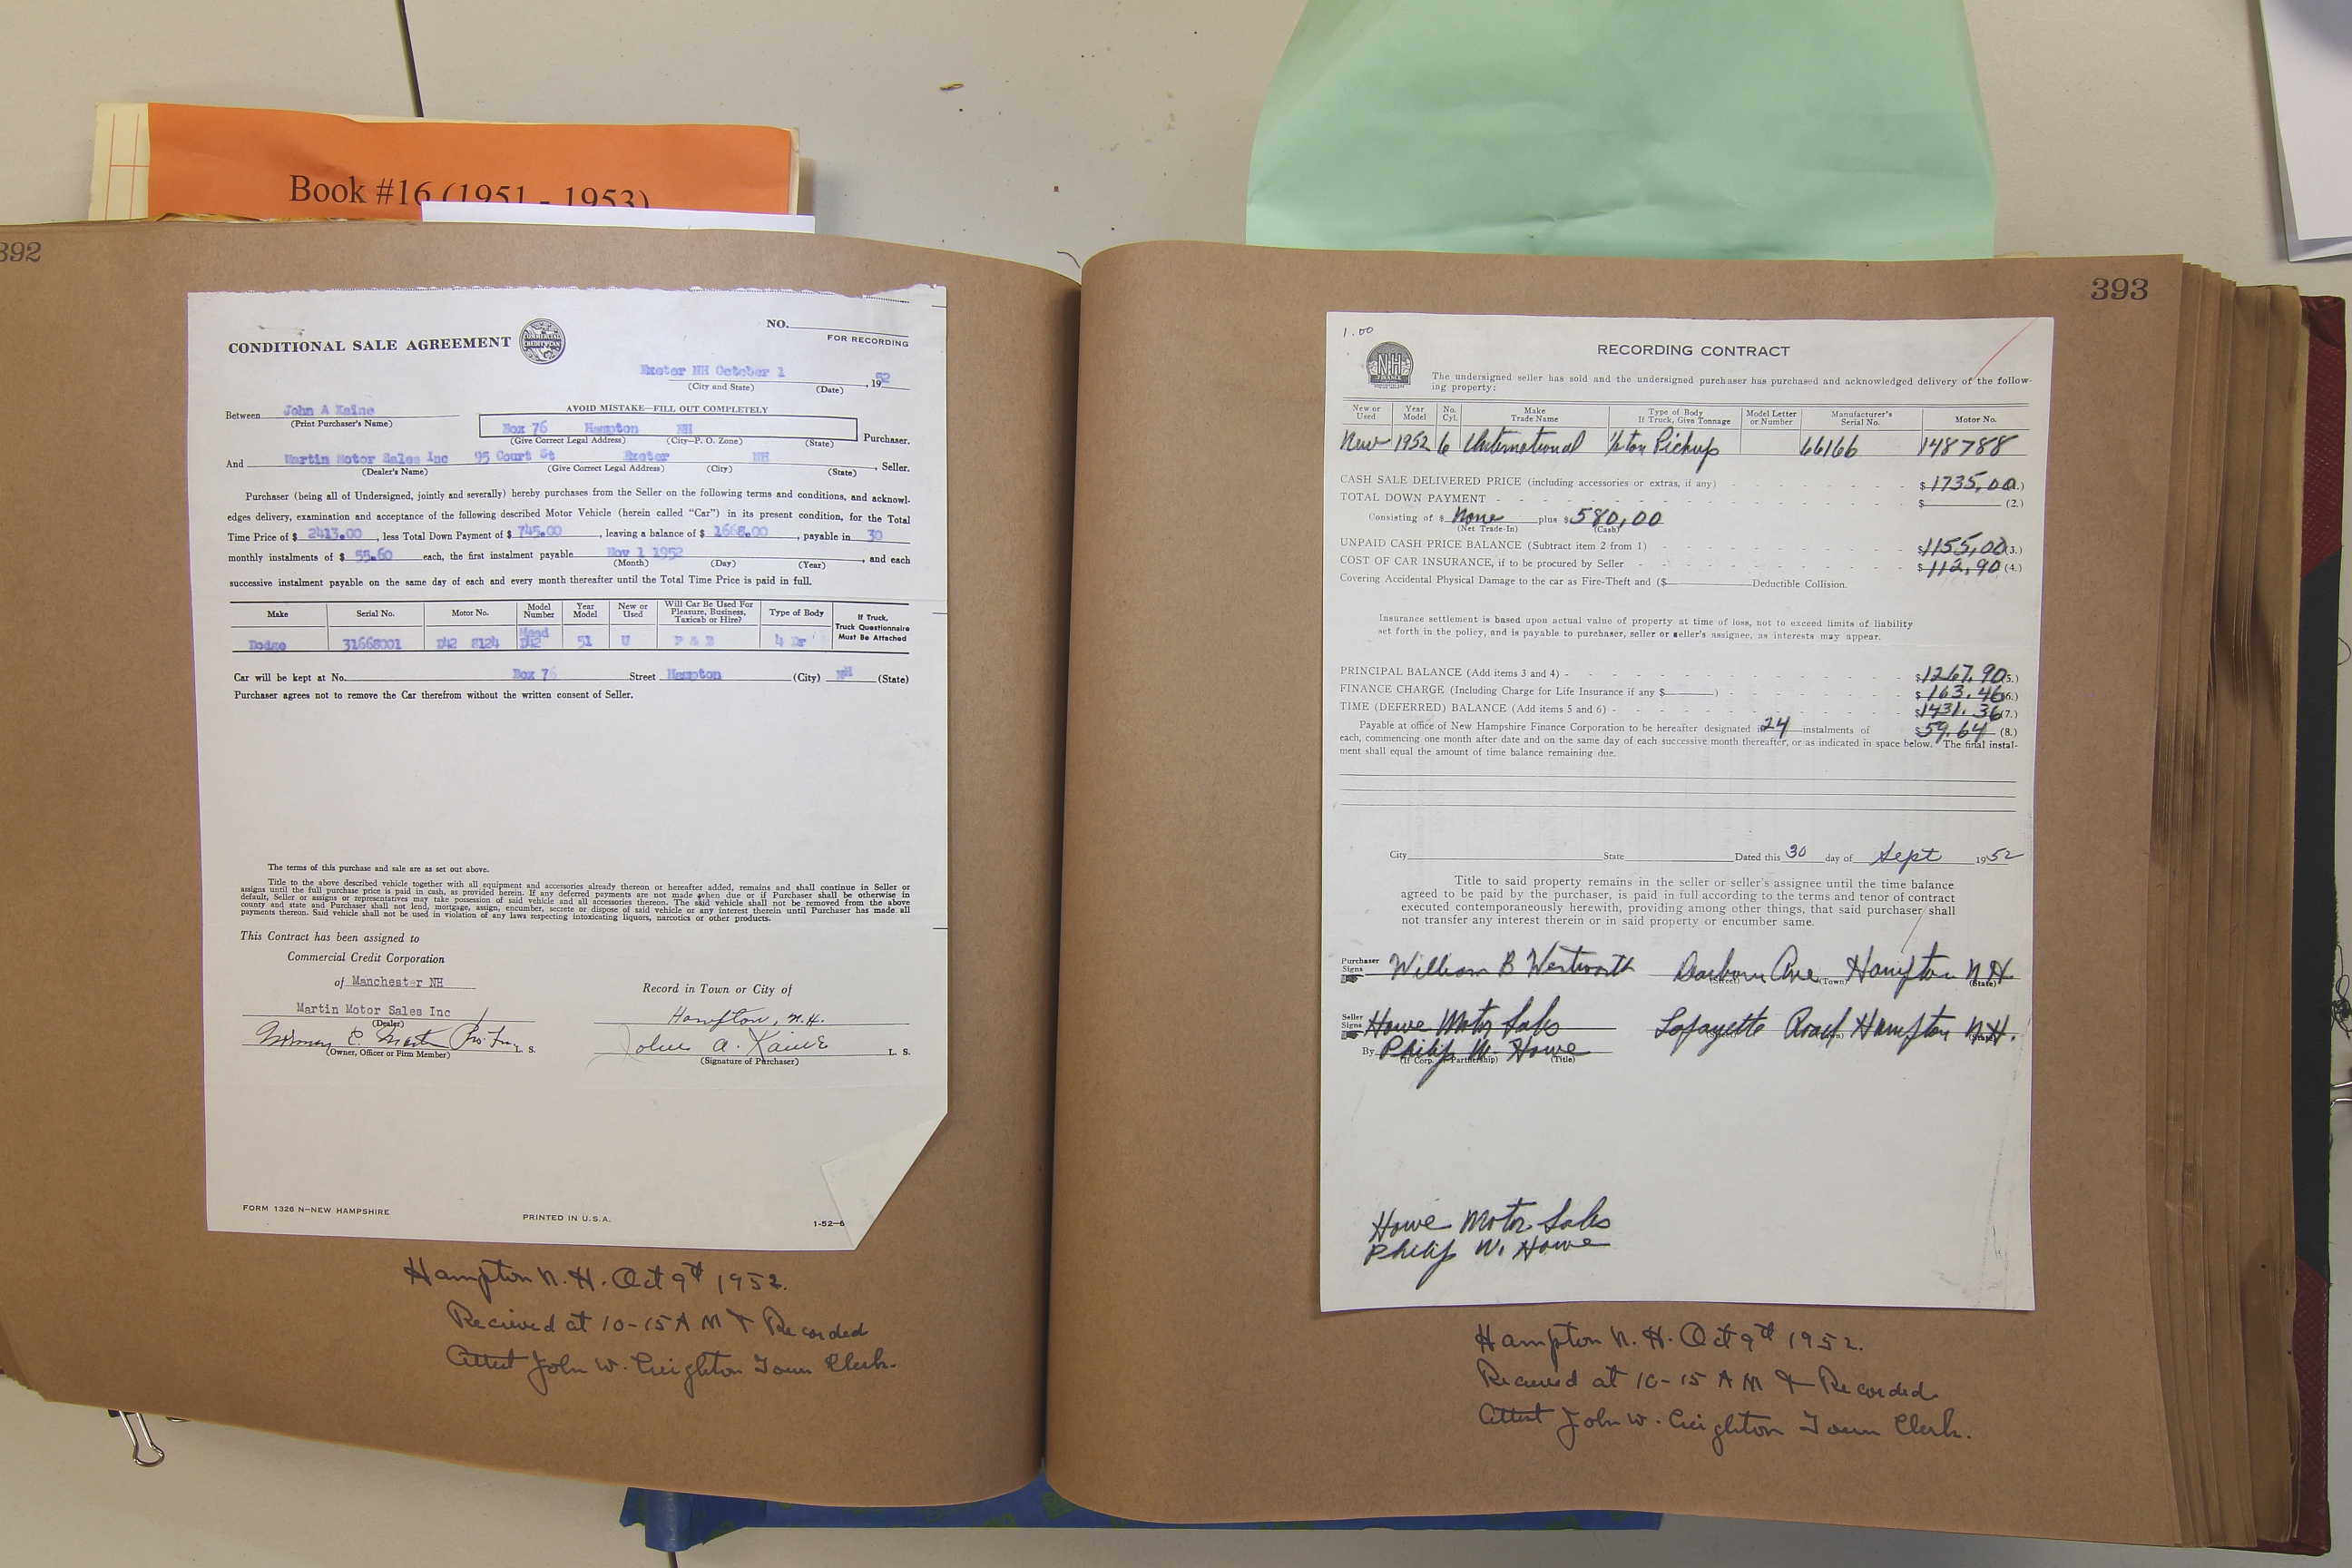 Book #16 (1951 - 1953)
392
CONDITIONAL SALE AGREEMENT
COMMERCIAL CREDIT
NO.
FOR RECORDING
Exeter NH October 1, 1952
(City and State) (Date)
Between John A Kaine
(Print Purchaser's Name)
AVOID MISTAKE—FILL OUT COMPLETELY
Box 76 Hampton NH Purchaser.
(Give Correct Legal Address) (City—P. O. Zone) (State)
And Martin Motor Sales Inc 95 Court St Exeter NH, Seller.
(Dealer's Name) (Give Correct Legal Address) (City) (State)
Purchaser (being all of Undersigned, jointly and severally) hereby purchases from the Seller on the following terms and conditions, and acknowl-
edges delivery, examination and acceptance of the following described Motor Vehicle (herein called "Car") in its present condition, for the Total
Time Price of $ 2413.00, less Total Down Payment of $ 745.00, leaving a balance of $ 1668.00, payable in 30
monthly instalments of $ 55.60 each, the first instalment payable Nov 1 1952, and each
(Month) (Day) (Year)
successive instalment payable on the same day of each and every month thereafter until the Total Time Price is paid in full.
Make Serial No. Motor No. Model Number Year Model New or Used Will Car Be Used For Pleasure, Business, Taxicab or Hire? Type of Body If Truck, Truck Questionnaire Must Be Attached
Dodge 31668001 D42 8124 Mead D42 51 U P & B 4 Dr
Car will be kept at No. Box 76 Street Hampton (City) NH (State)
Purchaser agrees not to remove the Car therefrom without the written consent of Seller.
The terms of this purchase and sale are as set out above.
Title to the above described vehicle together with all equipment and accessories already thereon or hereafter added, remains and shall continue in Seller or
assigns until the full purchase price is paid in cash, as provided herein. If any deferred payments are not made when due or if Purchaser shall be otherwise in
default, Seller or assigns or representatives may take possession of said vehicle and all accessories thereon. The said vehicle shall not be removed from the above
county and state and Purchaser shall not lend, mortgage, assign, encumber, secrete or dispose of said vehicle or any interest therein until Purchaser has made all
payments thereon. Said vehicle shall not be used in violation of any laws respecting intoxicating liquors, narcotics or other products.
This Contract has been assigned to
Commercial Credit Corporation
of Manchester NH
Record in Town or City of
Martin Motor Sales Inc
(Dealer)
Hampton, N.H.
Norman E. Martin Pres. Treas. L. S.
(Owner, Officer or Firm Member)
John A. Kaine L. S.
(Signature of Purchaser)
FORM 1326 N—NEW HAMPSHIRE
PRINTED IN U.S.A.
1-52—6
Hampton N. H. Oct 9th 1952.
Recieved at 10-15 A M & Recorded
Attest John W. Creighton Town Clerk.
393
1.00
NH
FINANCE
RECORDING CONTRACT
The undersigned seller has sold and the undersigned purchaser has purchased and acknowledged delivery of the follow-
ing property:
New or Used Year Model No. Cyl. Make Trade Name Type of Body If Truck, Give Tonnage Model Letter or Number Manufacturer's Serial No. Motor No.
New 1952 6 International ½ ton Pickup 66166 148788
CASH SALE DELIVERED PRICE (including accessories or extras, if any) $ 1735.00 (1.)
TOTAL DOWN PAYMENT $ (2.)
Consisting of $ None plus $ 580.00
(Net Trade-In) (Cash)
UNPAID CASH PRICE BALANCE (Subtract item 2 from 1) $ 1155.00 (3.)
COST OF CAR INSURANCE, if to be procured by Seller $ 112.90 (4.)
Covering Accidental Physical Damage to the car as Fire-Theft and ($ Deductible Collision.
Insurance settlement is based upon actual value of property at time of loss, not to exceed limits of liability
set forth in the policy, and is payable to purchaser, seller or seller's assignee, as interests may appear.
PRINCIPAL BALANCE (Add items 3 and 4) $ 1267.90 (5.)
FINANCE CHARGE (Including Charge for Life Insurance if any $ ) $ 163.46 (6.)
TIME (DEFERRED) BALANCE (Add items 5 and 6) $ 1431.36 (7.)
Payable at office of New Hampshire Finance Corporation to be hereafter designated in 24 instalments of $ 59.64 (8.)
each, commencing one month after date and on the same day of each successive month thereafter, or as indicated in space below. The final instal-
ment shall equal the amount of time balance remaining due.
City State Dated this 30 day of Sept 1952
Title to said property remains in the seller or seller's assignee until the time balance
agreed to be paid by the purchaser, is paid in full according to the terms and tenor of contract
executed contemporaneously herewith, providing among other things, that said purchaser shall
not transfer any interest therein or in said property or encumber same.
Purchaser Signs William B Wentworth Dearborn Ave Hampton N H
(Street) (Town) (State)
Seller Signs Howe Motor Sales Lafayette Road Hampton N.H.
(Street) (Town) (State)
By Philip W. Howe
(If Corp. or Partnership) (Title)
Howe Motor Sales
Philip W. Howe
Hampton N. H. Oct 9th 1952.
Recieved at 10-15 A M & Recorded
Attest John W. Creighton Town Clerk.